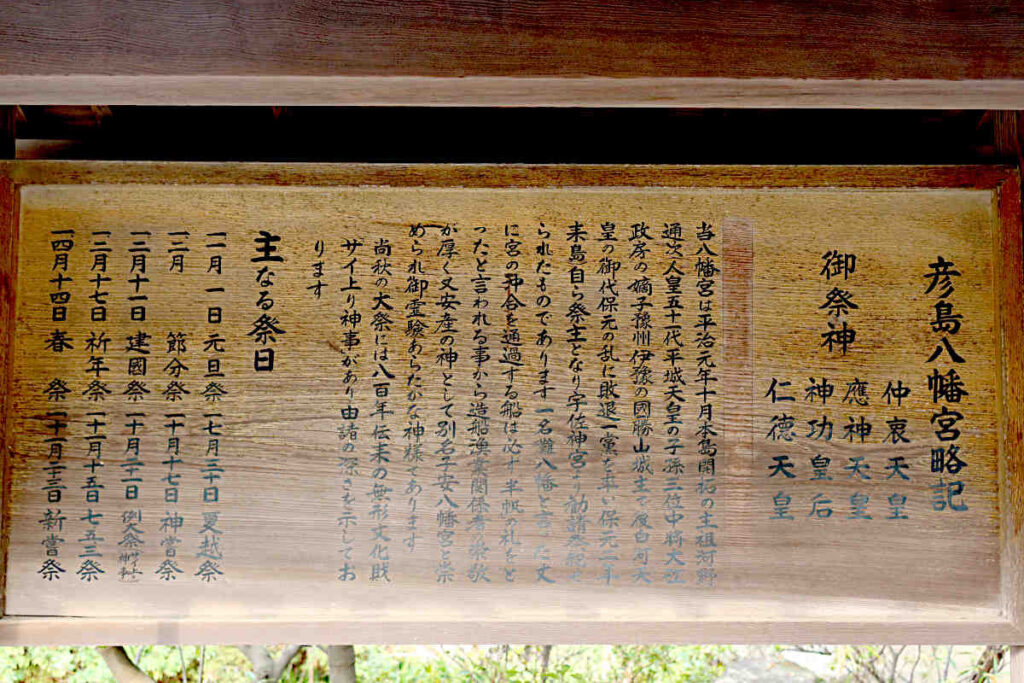 彦島八幡宮略記
御祭神
仲哀天皇
應神天皇
神功皇后
仁徳天皇
当八幡宮は平治元年十月本島開拓の主祖河野
通次人皇五十一代平城天皇の子孫三位中将大臣
政房の嫡子豫州伊豫の國勝山城主で後白河天
皇の御代保元の乱に敗退一黨を率い保元二年
来島自ら祭主となり宇佐神宮より勧請奉祀せ
られたものであります一名難八幡と言った丈
に宮の沖合を通過する船は必ず半帆の礼をと
ったと言われる事から造船漁業関係者の崇敬
が厚く又安産の神として別名子安八幡宮と崇
められ御霊験あらたかな神様であります
尚秋の大祭には八百年伝来の無形文化財
サイ上り神事があり由緒の深さを示してお
ります
主なる祭日
一一月一日 元旦祭 一七月三十日 夏越祭
一二月 節分祭 一十月十七日 神嘗祭
一二月十一日 建國祭 一十月二十一日 例大祭(サイ上り神事)
一二月十七日 祈年祭 一十一月十五日 七五三祭
一四月十四日 春祭 一十一月二十三日 新嘗祭